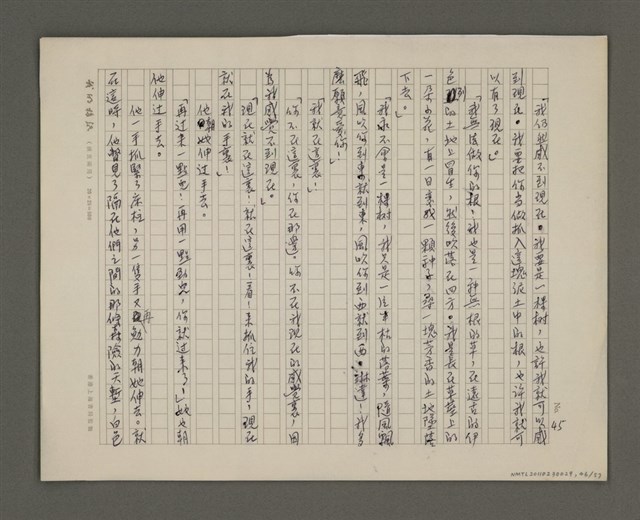 「我仍然感不到現在。我要是一棵樹,也許我就可以感
到現在。我要把你當做抓入這塊泥土中的根,也许我就可
以有了現在。」
「我無法做你的根,我也是一種無根的草,在遠古的
色的土地上留生,然後吹落在四方。我是長在草莖上的
一朵小花,有一日变成一顆种子,朝一塊芳香的土地墜落
下去。」
「我永不會是一棵樹,我只是一片枯的落葉,隨風飄
飛,風吹你到東就到東,風吹你到西就到西。琳達!我多
麼願意愛你!」
「我就在這裏!」
「你不在這裏,你在那邊。你不在我現在的感覺裏,因
為我感覺不到現在。」
「現在就在這裏!就在這裏!看!来抓住我的手,現在
就在我的手裏!」
他朝她伸过手去。
「再过来一點點,再用一點點力,你就过来了!」她也朝
他伸过手去。
他一手抓緊了床柱,另一隻手又再勉力朝她伸去。就
在這時,他瞥見了隔在他們之間的那條森險的大塹,白色
45
NMTL20110280029